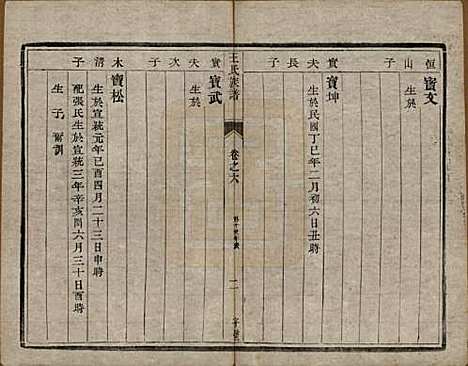 恆山子
寶文
生於
實夫長子
寶坤
生於民國丁巳年二月初六日丑時
王氏族譜
卷之六
實夫次子
寶武
生於
木清子
寶松
生於宣統元年己酉四月二十三日申時
配張氏生於宣統三年辛亥閏六月三十日酉時
生子